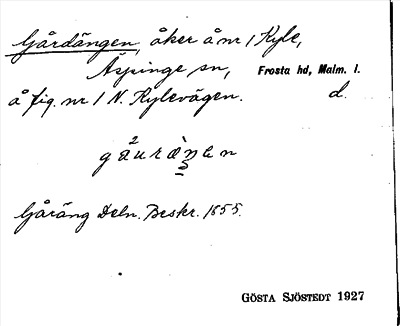 Gårdängen, åker å nr 1 Kyle,
Äspinge sn, Frosta hd, Malm. l.
å fig. nr 1 N. Kylevägen. d.
Gåräng Deln. Beskr. 1855.
GÖSTA SJÖSTEDT 1927